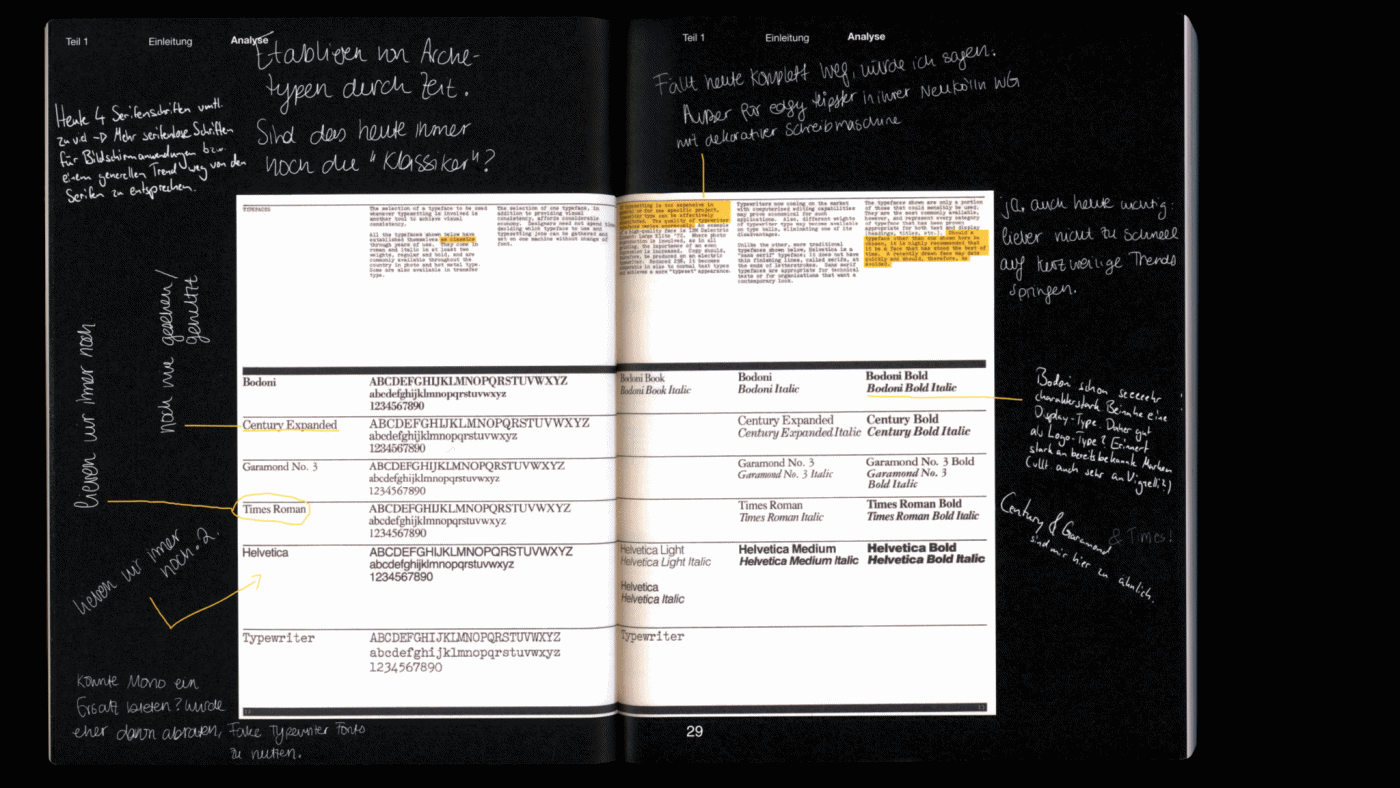 Teil 1 Einleitung Analyse
Etablieren von Arche-
typen durch Zeit.
Sind das heute immer
noch die "Klassiker"?
Heute 4 Serifenschriften vmtl.
zu viel → Mehr serifenlose Schriften
für Bildschirmanwendungen bzw.
einem generellen Trend weg von den
Serifen zu entsprechen.
noch nie gesehen/
genutzt
lieben wir immer noch
lieben wir immer
noch. 2.
Könnte Mono ein
Ersatz bieten? Würde
eher davon abraten, Fake Typewriter Fonts
zu nutzen.
TYPEFACES
The selection of a typeface to be used
whenever typesetting is involved is
another tool to achieve visual
consistency.
All the typefaces shown below have
established themselves as classics
through years of use. They come in
roman and italic in at least two
weights, regular and bold, and are
commonly available throughout the
country in photo and hot metal type.
Some are also available in transfer
type.
The selection of one typeface, in
addition to providing visual
consistency, affords considerable
economy. Designers need not spend time
deciding which typeface to use and
typesetting jobs can be gathered and
set on one machine without change of
font.
Bodoni
ABCDEFGHIJKLMNOPQRSTUVWXYZ
abcdefghijklmnopqrstuvwxyz
1234567890
Century Expanded
ABCDEFGHIJKLMNOPQRSTUVWXYZ
abcdefghijklmnopqrstuvwxyz
1234567890
Garamond No. 3
ABCDEFGHIJKLMNOPQRSTUVWXYZ
abcdefghijklmnopqrstuvwxyz
1234567890
Times Roman
ABCDEFGHIJKLMNOPQRSTUVWXYZ
abcdefghijklmnopqrstuvwxyz
1234567890
Helvetica
ABCDEFGHIJKLMNOPQRSTUVWXYZ
abcdefghijklmnopqrstuvwxyz
1234567890
Typewriter
ABCDEFGHIJKLMNOPQRSTUVWXYZ
abcdefghijklmnopqrstuvwxyz
1234567890
Teil 1 Einleitung Analyse
Fällt heute komplett weg, würde ich sagen.
Außer für edgy Hipster in ihrer Neukölln WG
mit dekorativer Schreibmaschine
Typewriters now coming on the market
with computerized editing capabilities
may prove economical for such
applications. Also, different weights
of typewriter type may become available
on type balls, eliminating one of its
disadvantages.
Unlike the other, more traditional
typefaces shown below, Helvetica is a
"sans serif" typeface; it does not have
thin finishing lines, called serifs, at
the ends of letterstrokes. Sans serif
typefaces are appropriate for technical
texts or for organizations that want a
contemporary look.
The typefaces shown are only a portion
of those that could sensibly be used.
They are the most commonly available,
however, and represent every category
of typeface that has been proven
appropriate for both text and display
(headings, titles, etc.). Should a
typeface other than one shown here be
chosen, it is highly recommended that
it be a face that has stood the test of
time. A recently drawn face may date
quickly and should, therefore, be
avoided.
ja, auch heute wichtig:
lieber nicht zu schnell
auf kurzweilige Trends
springen.
Bodoni Book
Bodoni Book Italic
Bodoni
Bodoni Italic
Bodoni Bold
Bodoni Bold Italic
Century Expanded
Century Expanded Italic
Century Bold
Century Bold Italic
Garamond No. 3
Garamond No. 3 Italic
Garamond No. 3 Bold
Garamond No. 3
Bold Italic
Times Roman
Times Roman Italic
Times Roman Bold
Times Roman Bold Italic
Helvetica Light
Helvetica Light Italic
Helvetica
Helvetica Italic
Helvetica Medium
Helvetica Medium Italic
Helvetica Bold
Helvetica Bold Italic
Typewriter
Bodoni schon seeeeehr
charakterstark. Beinahe eine
Display-Type. Daher gut
als Logo-Type? Erinnert
stark an bereits bekannte Marken
(vllt auch sehr an Vignelli?)
Century & Garamond
& Times!
sind mir hier zu ähnlich.
29